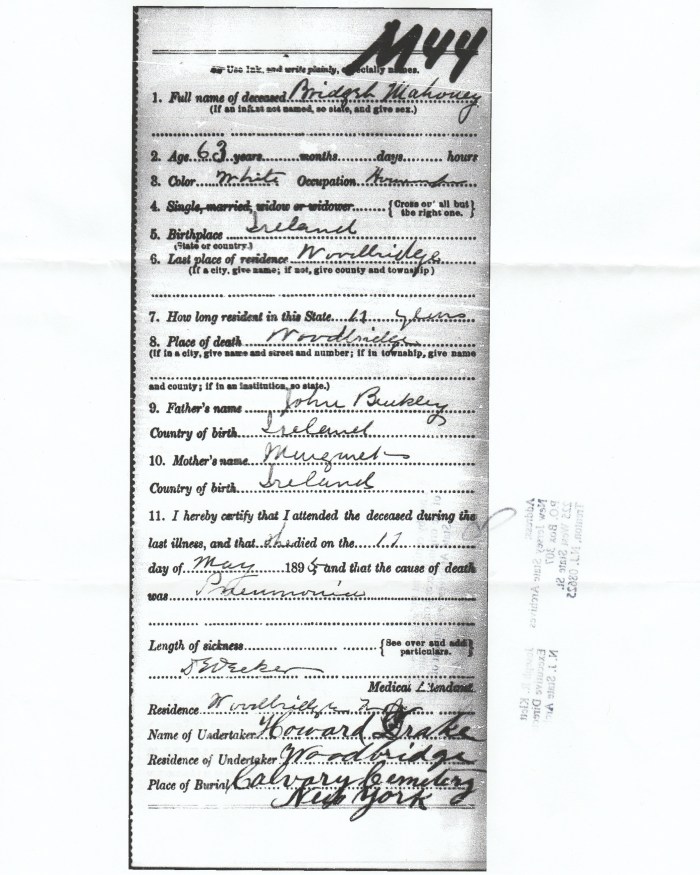 M44
Use Ink, and write plainly, especially names.
1. Full name of deceased Bridget Mahoney
(If an infant not named, so state, and give sex.)
2. Age 63 years months days hours
3. Color White Occupation
4. Single, married, widow or widower {Cross out all but the right one.}
5. Birthplace Ireland
(State or country.)
6. Last place of residence Woodbridge
(If a city, give name; if not, give county and township)
7. How long resident in this State 11 years
8. Place of death Woodbridge
(If in a city, give name and street and number; if in township, give name
and county; if in an institution, so state.)
9. Father's name John Buckley
Country of birth Ireland
10. Mother's name Margaret
Country of birth Ireland
11. I hereby certify that I attended the deceased during the
last illness, and that she died on the 11
day of May 1895 and that the cause of death
was Pneumonia
Length of sickness {See over and add particulars.}
Medical Attendant
Residence Woodbridge N.J.
Name of Undertaker Howard Drake
Residence of Undertaker Woodbridge
Place of Burial Calvary Cemetery
New York
Trenton, NJ 08625
225 West State St.
PO Box 307
New Jersey State Archives